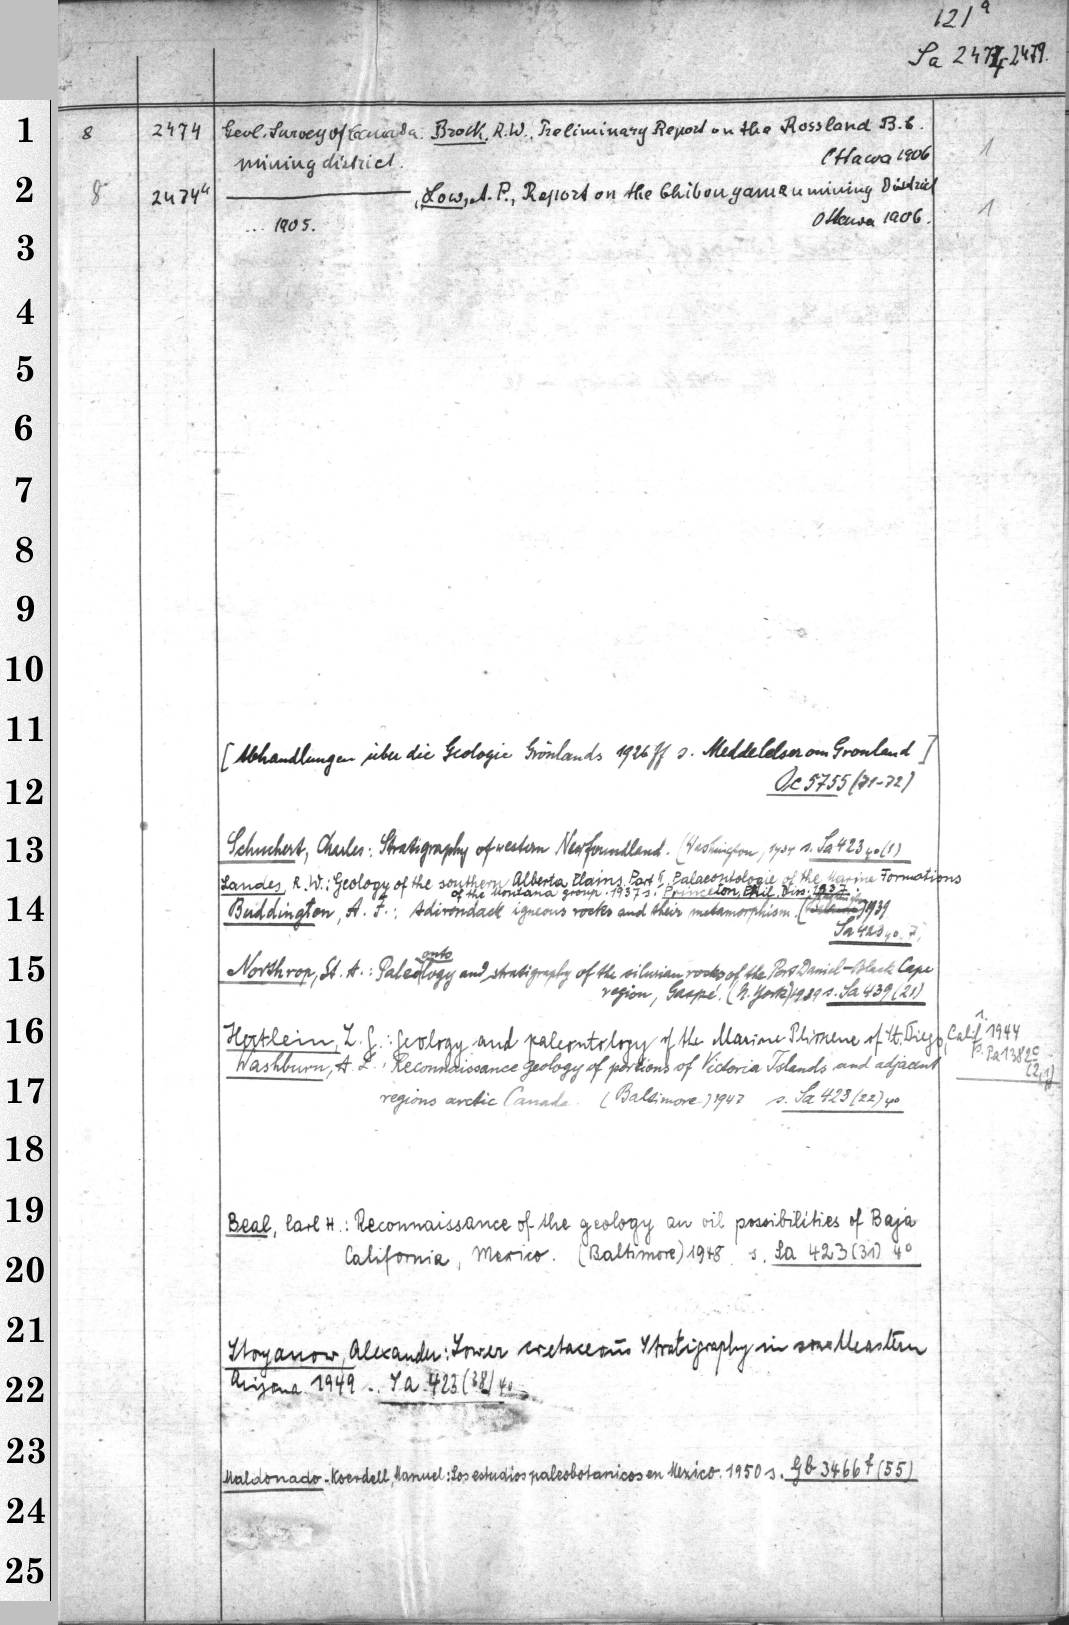 121a
Sa 2474-2479.
1
8 2474 Geol. Survey of Canada: Brock, R.W., Preliminary Report on the Rossland B.C.
mining district. Ottawa 1906 1
2
8 2474a ———, Low, A.P., Report on the Chibougamau mining District
... 1905. Ottawa 1906. 1
3
4
5
6
7
8
9
10
11
[Abhandlungen über die Geologie Grönlands 1926 ff s. Meddelelser om Gronland]
12
Oc 5755 (71-72)
13
Schuchert, Charles: Stratigraphy of western Newfoundland. (Washington, 1934 s. Sa 423 40 (1)
Landes, R. W.: Geology of the southern Alberta Plains. Part II Palaeontologie of the marine Formations
of the Montana group. 1937 s. Princeton, Phil. Diss. 1937.
14
Buddington, A. F.: Adirondack igneous rocks and their metamorphism. 1939
Sa 423 40. 7)
15
Northrop, St. A.: Paleontology and stratigraphy of the silurian rocks of the Port Daniel-Black Cape
region, Gaspé. (N. York) 1939 s. Sa 439 (21)
16
Hertlein, L. G.: Geology and paleontology of the Marine Pliocene of St. Diego, Calif. 1944
s. Pa 1382c
(2,1)
Washburn, A. L.: Reconnaissance geology of portions of Victoria Islands and adjacent
17
regions arctic Canada. (Baltimore) 1947 s. Sa 423 (22) 40
18
19
Beal, Carl H.: Reconnaissance of the geology an oil possibilities of Baja
California, Mexico. (Baltimore) 1948 s. Sa 423 (31) 4°
20
21
Stoyanow, Alexander: Lower cretaceous Stratigraphy in southeastern
22
Arizona 1949 s. Sa 423 (38) 40
23
Maldonado-Koerdell, Manuel: Los estudios paleobotanicos en Mexico. 1950 s. Gb 3466f (55)
24
25